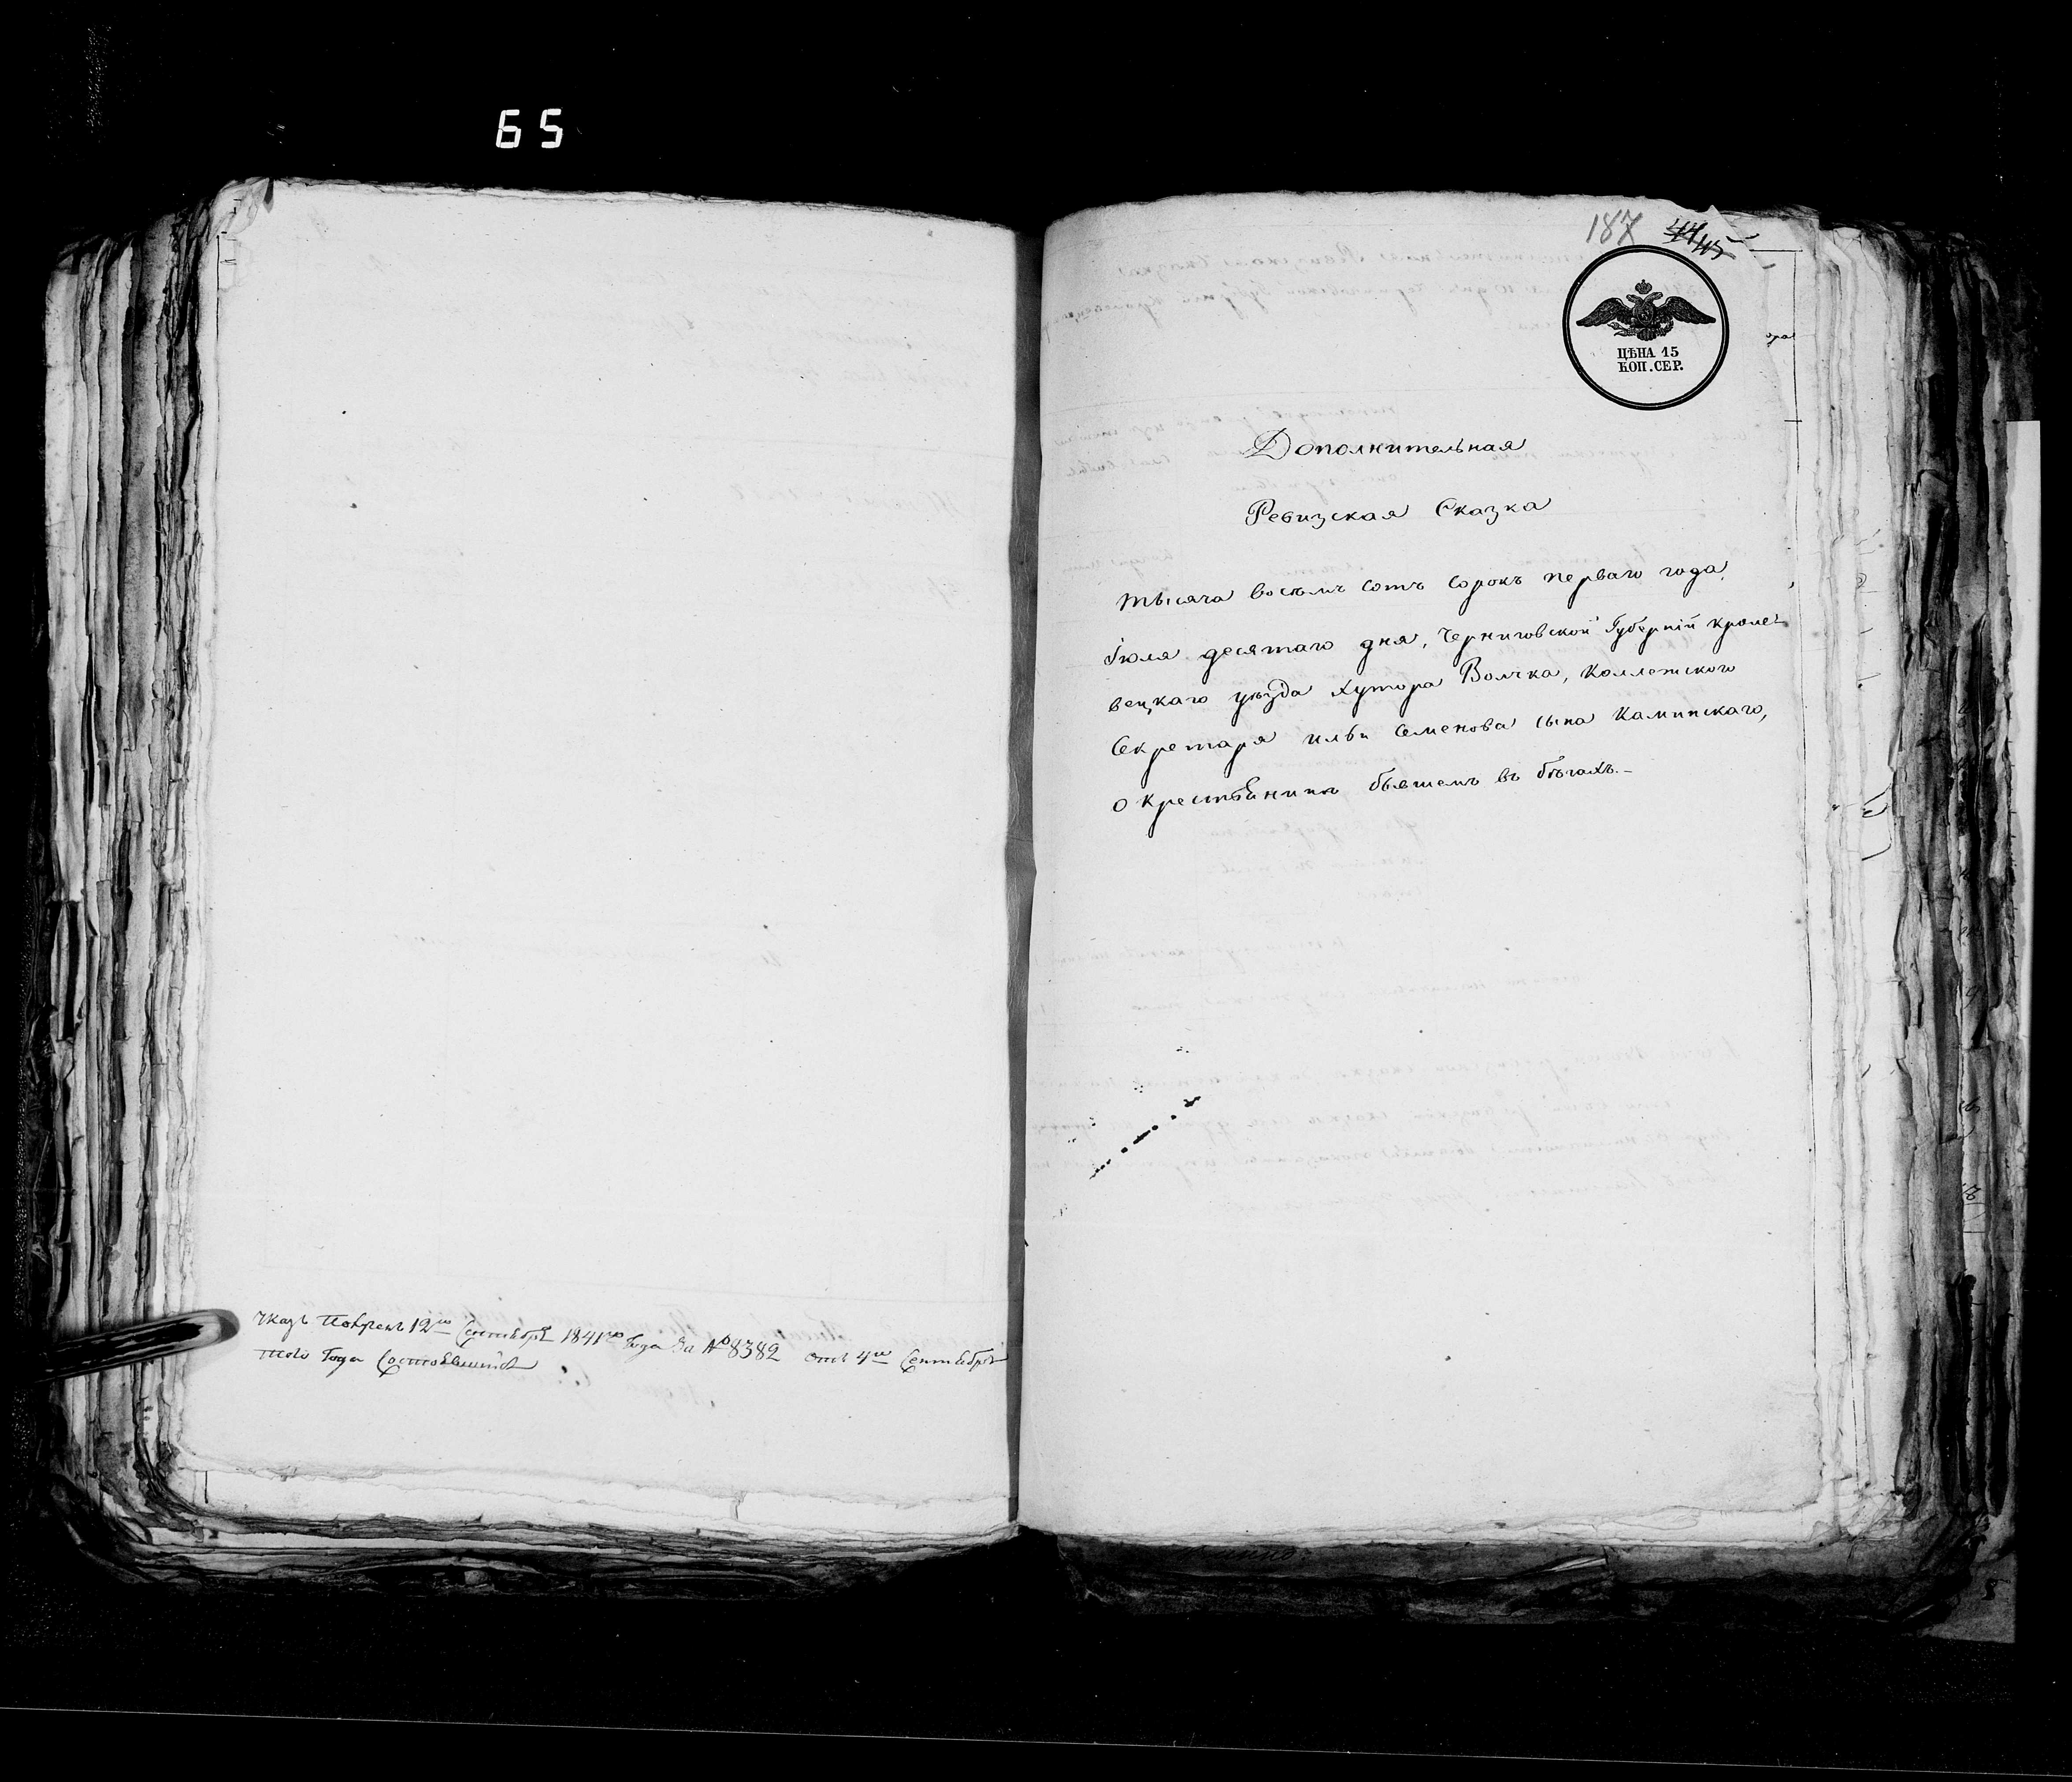 65
Указъ Поврем 12го Сентября 1841го Года За №8382 отъ 4го Сентября
того Года Состоявшийся
187
ЦѢНА 15
КОП. СЕР.
Дополнительная
Ревизская Сказка
тысяча восемъ сотъ сорокъ перваго года,
Іюля десятаго дня, Черниговской Губерніи кроле-
вецкаго уѣзда хутора Волчка, Коллежскаго
Секретаря Ильи Семенова сына Каминскаго,
О крестьянинѣ бывшемъ въ бѣгахъ.-